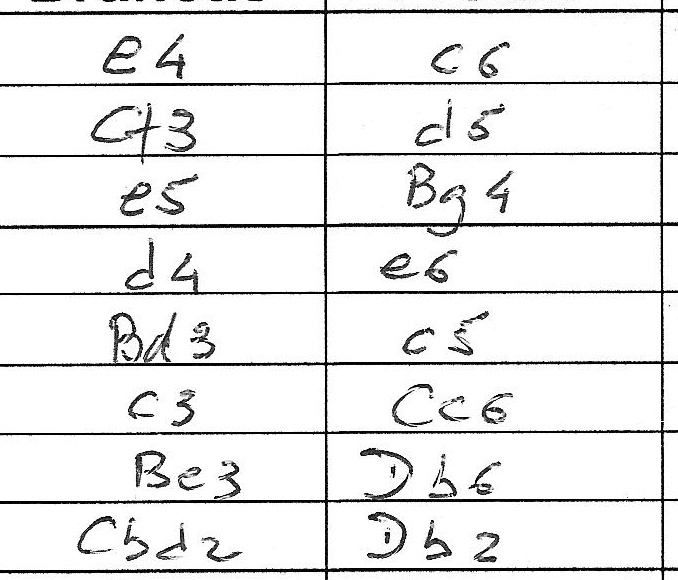 e4 c6
Cf3 d5
e5 Bg4
d4 e6
Bd3 c5
c3 Cc6
Be3 Db6
Cbd2 Db2